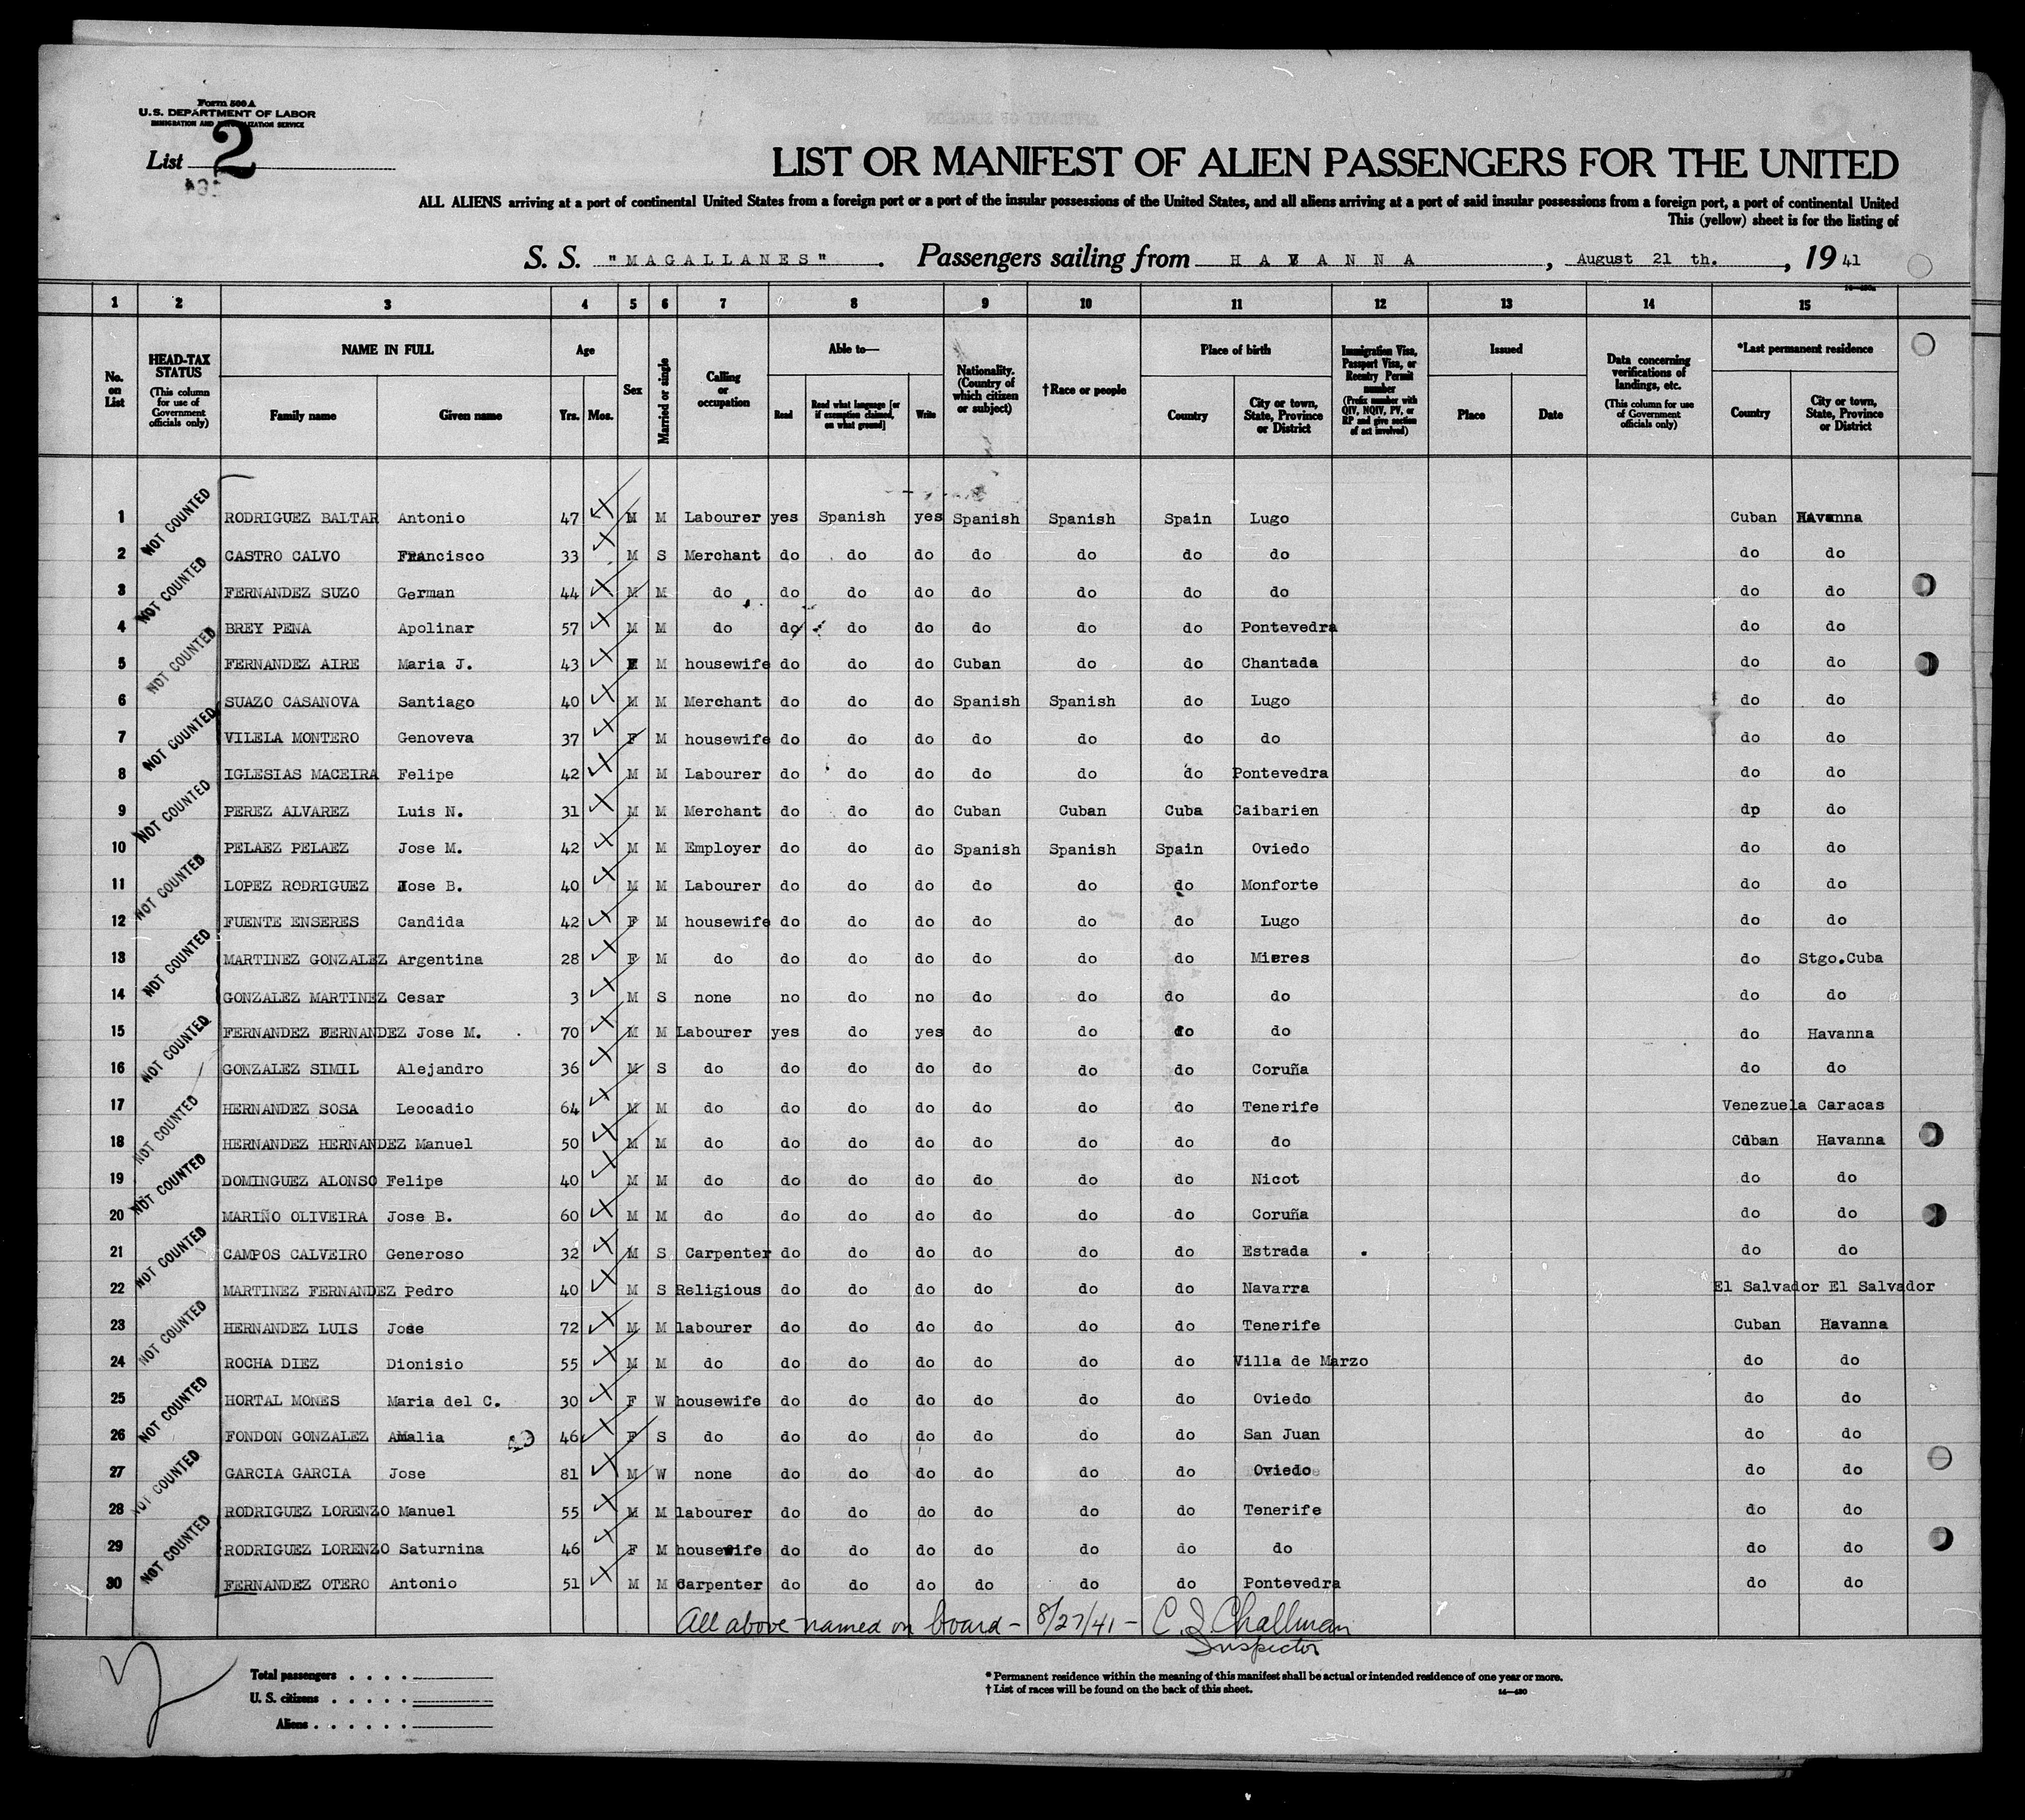 Form 500 A
U.S. DEPARTMENT OF LABOR
IMMIGRATION AND NATURALIZATION SERVICE
List 2
LIST OR MANIFEST OF ALIEN PASSENGERS FOR THE UNITED
ALL ALIENS arriving at a port of continental United States from a foreign port or a port of the insular possessions of the United States, and all aliens arriving at a port of said insular possessions from a foreign port, a port of continental United
This (yellow) sheet is for the listing of
S. S. "MAGALLANES". Passengers sailing from HAVANNA, August 21 th., 19 41
1 2 3 4 5 6 7 8 9 10 11 12 13 14 15
No. on List
HEAD-TAX STATUS (This column for use of Government officials only)
NAME IN FULL Family name Given name
Age Yrs. Mos.
Sex
Married or single
Calling or occupation
Able to— Read Read what language [or if exemption claimed, on what ground] Write
Nationality. (Country of which citizen or subject)
†Race or people
Place of birth Country City or town, State, Province or District
Immigration Visa, Passport Visa, or Reentry Permit number (Prefix number with QIV, NQIV, PV, or RP and give section of act involved)
Issued Place Date
Data concerning verifications of landings, etc. (This column for use of Government officials only)
*Last permanent residence Country City or town, State, Province or District
1 NOT COUNTED RODRIGUEZ BALTAR Antonio 47 M M Labourer yes Spanish yes Spanish Spanish Spain Lugo Cuban Havanna
2 CASTRO CALVO Francisco 33 M S Merchant do do do do do do do do do
3 NOT COUNTED FERNANDEZ SUZO German 44 M M do do do do do do do do do do
4 BREY PENA Apolinar 57 M M do do do do do do do Pontevedra do do
5 NOT COUNTED FERNANDEZ AIRE Maria J. 43 F M housewife do do do Cuban do do Chantada do do
6 SUAZO CASANOVA Santiago 40 M M Merchant do do do Spanish Spanish do Lugo do do
7 NOT COUNTED VILELA MONTERO Genoveva 37 F M housewife do do do do do do do do do
8 IGLESIAS MACEIRA Felipe 42 M M Labourer do do do do do do Pontevedra do do
9 NOT COUNTED PEREZ ALVAREZ Luis N. 31 M M Merchant do do do Cuban Cuban Cuba Caibarien dp do
10 PELAEZ PELAEZ Jose M. 42 M M Employer do do do Spanish Spanish Spain Oviedo do do
11 NOT COUNTED LOPEZ RODRIGUEZ Jose B. 40 M M Labourer do do do do do do Monforte do do
12 FUENTE ENSERES Candida 42 F M housewife do do do do do do Lugo do do
13 NOT COUNTED MARTINEZ GONZALEZ Argentina 28 F M do do do do do do do Mieres do Stgo.Cuba
14 GONZALEZ MARTINEZ Cesar 3 M S none no do no do do do do do do
15 NOT COUNTED FERNANDEZ FERNANDEZ Jose M. 70 M M Labourer yes do yes do do do do do Havanna
16 GONZALEZ SIMIL Alejandro 36 M S do do do do do do do Coruña do do
17 NOT COUNTED HERNANDEZ SOSA Leocadio 64 M M do do do do do do do Tenerife Venezuela Caracas
18 HERNANDEZ HERNANDEZ Manuel 50 M M do do do do do do do do Cuban Havanna
19 NOT COUNTED DOMINGUEZ ALONSO Felipe 40 M M do do do do do do do Nicot do do
20 MARIÑO OLIVEIRA Jose B. 60 M M do do do do do do do Coruña do do
21 NOT COUNTED CAMPOS CALVEIRO Generoso 32 M S Carpenter do do do do do do Estrada do do
22 MARTINEZ FERNANDEZ Pedro 40 M S Religious do do do do do do Navarra El Salvador El Salvador
23 NOT COUNTED HERNANDEZ LUIS Jose 72 M M labourer do do do do do do Tenerife Cuban Havanna
24 ROCHA DIEZ Dionisio 55 M M do do do do do do do Villa de Marzo do do
25 NOT COUNTED HORTAL MONES Maria del C. 30 F W housewife do do do do do do Oviedo do do
26 FONDON GONZALEZ Amalia 46 F S do do do do do do do San Juan do do
27 NOT COUNTED GARCIA GARCIA Jose 81 M W none do do do do do do Oviedo do do
28 RODRIGUEZ LORENZO Manuel 55 M M labourer do do do do do do Tenerife do do
29 NOT COUNTED RODRIGUEZ LORENZO Saturnina 46 F M housewife do do do do do do do do do
30 FERNANDEZ OTERO Antonio 51 M M Carpenter do do do do do do Pontevedra do do
All above named on board - 8/27/41 - C. I. Challman
Inspector
Total passengers . . . .
U. S. citizens . . . . .
Aliens . . . . . .
* Permanent residence within the meaning of this manifest shall be actual or intended residence of one year or more.
† List of races will be found on the back of this sheet.